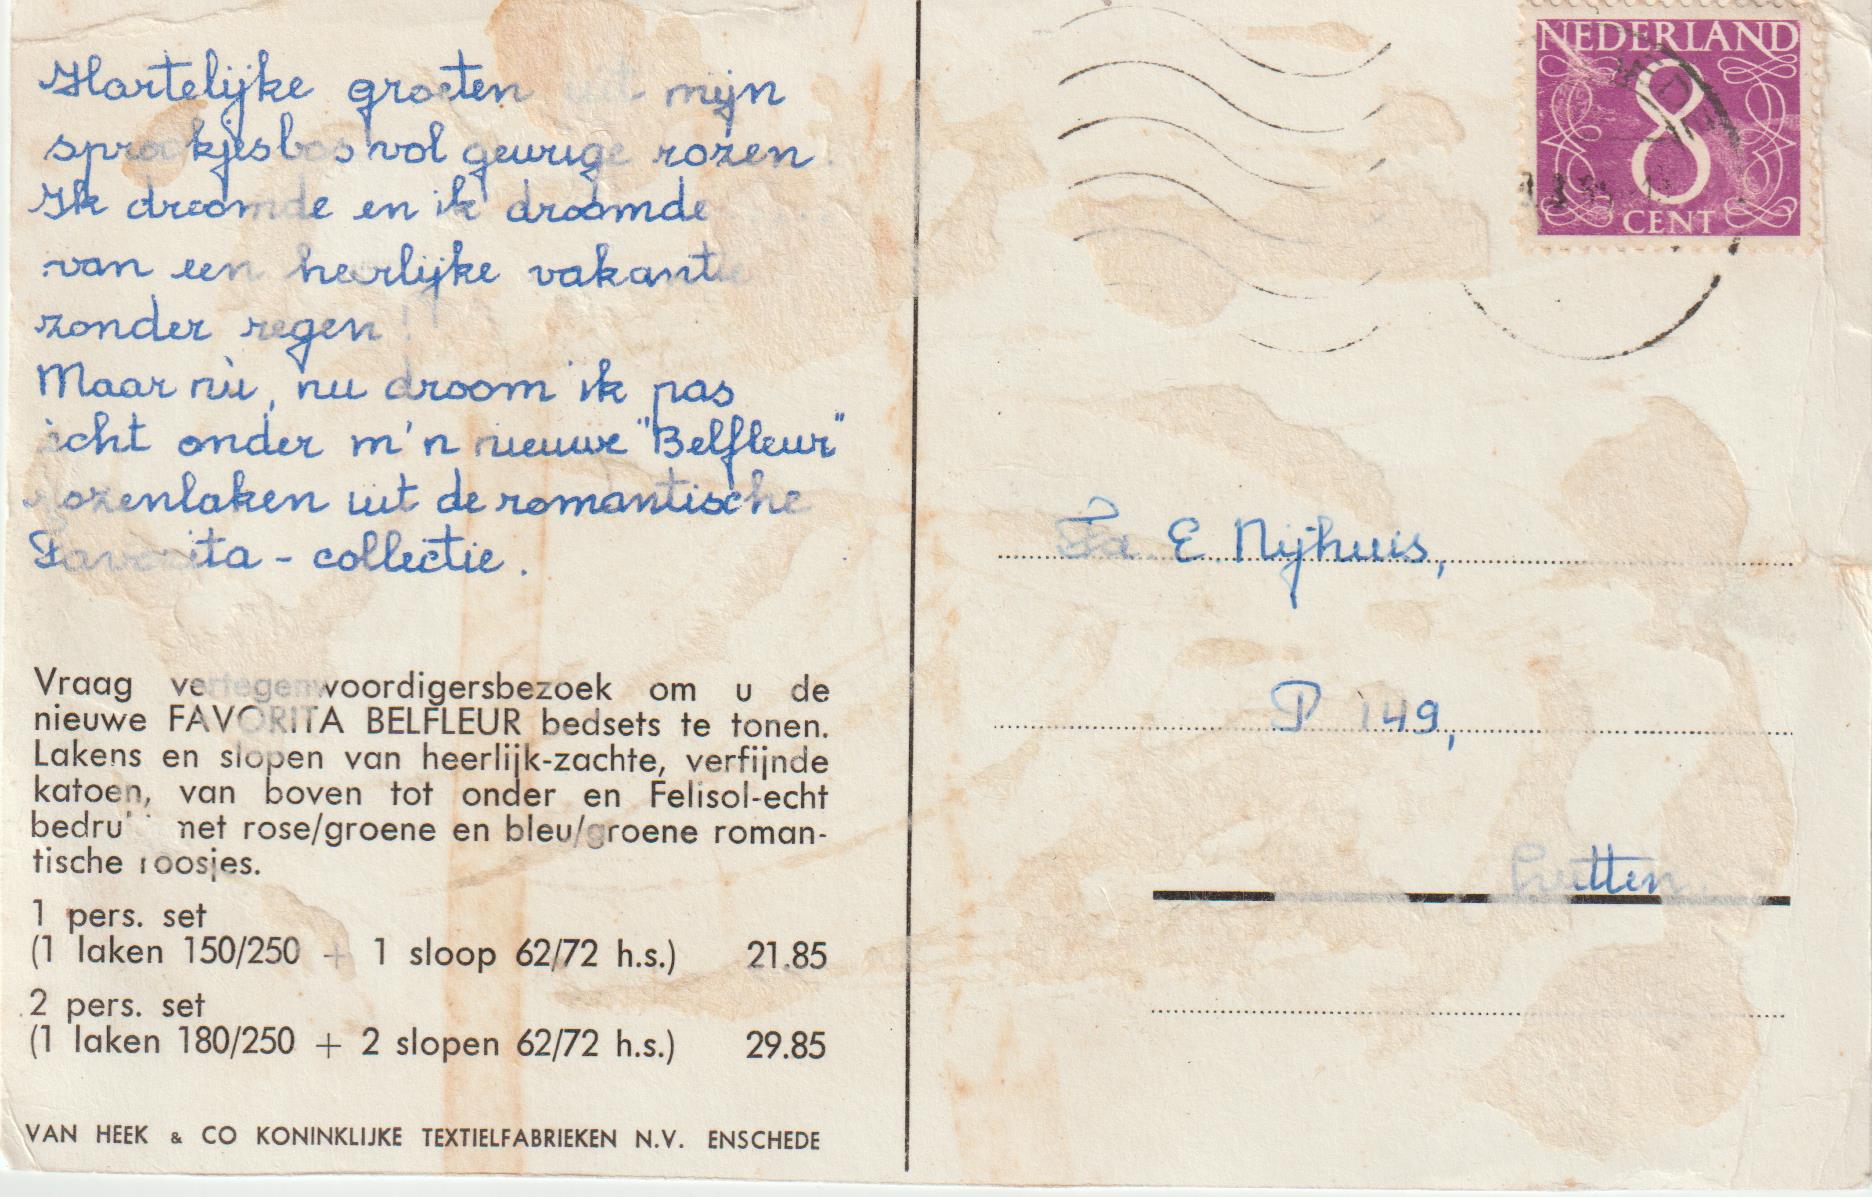 Hartelijke groeten uit mijn
sprookjesbos vol geurige rozen.
Ik droomde en ik droomde.....
van een heerlijke vakantie
zonder regen!!
Maar nù, nu droom ik pas
ècht onder m'n nieuwe "Belfleur"
rozenlaken uit de romantische
Favorita - collectie.
Vraag vertegenwoordigersbezoek om u de
nieuwe FAVORITA BELFLEUR bedsets te tonen.
Lakens en slopen van heerlijk-zachte, verfijnde
katoen, van boven tot onder en Felisol-echt
bedru met rose/groene en bleu/groene roman-
tische roosjes.
1 pers. set
(1 laken 150/250 + 1 sloop 62/72 h.s.) 21.85
2 pers. set
(1 laken 180/250 + 2 slopen 62/72 h.s.) 29.85
VAN HEEK & CO KONINKLIJKE TEXTIELFABRIEKEN N.V. ENSCHEDE
NEDERLAND
8
CENT
Fa. E. Nijhuis,
P 149,
Lutten